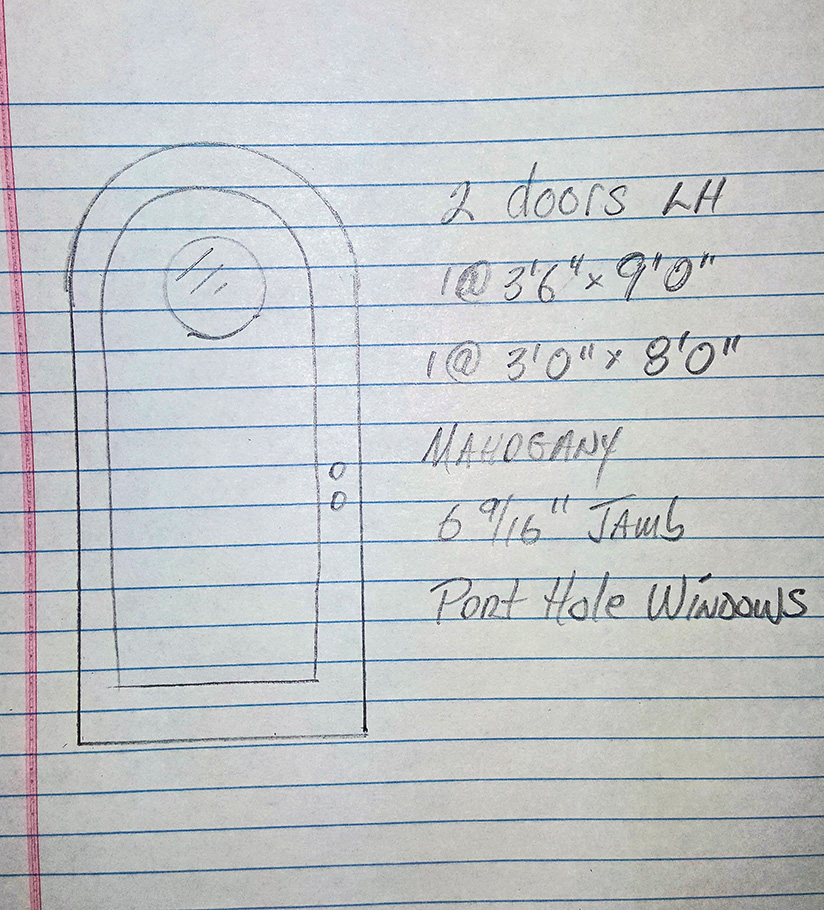 2 doors LH
1@ 3'6" x 9'0"
1@ 3'0" x 8'0"
MAHOGANY
6 9/16" JAmb
Port Hole WiNDOWS